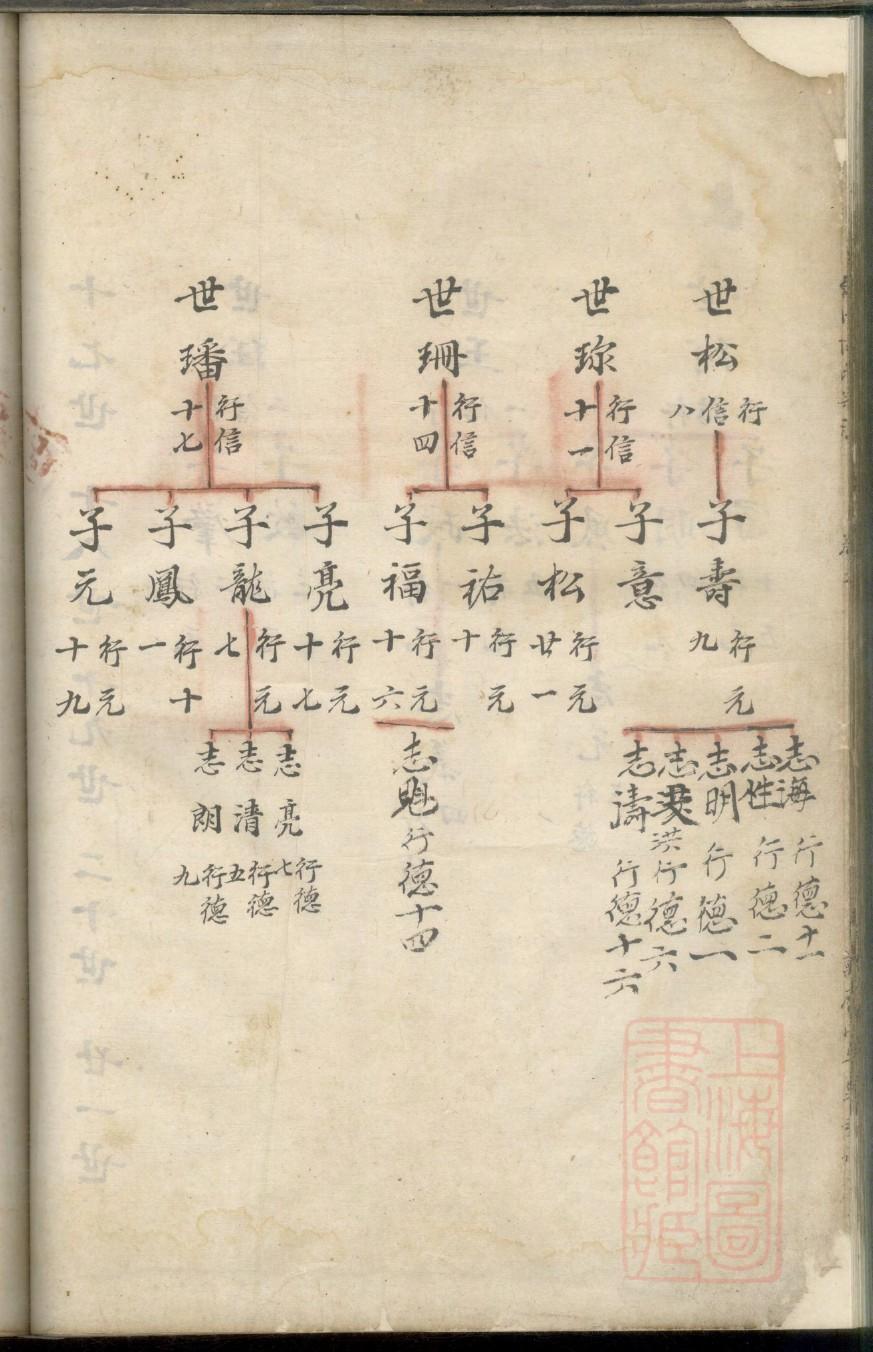 世松
行信八
世珎
行信十一
世珊
行信十四
世璠
行信十七
子壽
行元九
子意
子松
行元廿一
子祐
行元十
子福
行元十六
子亮
行元十七
子龍
行元七
子鳳
行十一
子元
行元十九
志海行德十一
志性行德二
志明行德一
志洪行德六
志濤行德十六
志魁行德十四
志亮
行德七
志清
行德五
志朗
行德九
上海圖
書館藏